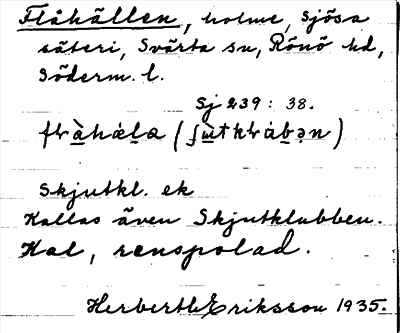 Flåhällen, holme, Sjösa
säteri, Svärta sn, Rönö hd,
Söderm. l.
Sj 239: 38.
Skjutkl. ek
Kallas även Skjutklubben.
Kal, renspolad.
Herberth Eriksson 1935.